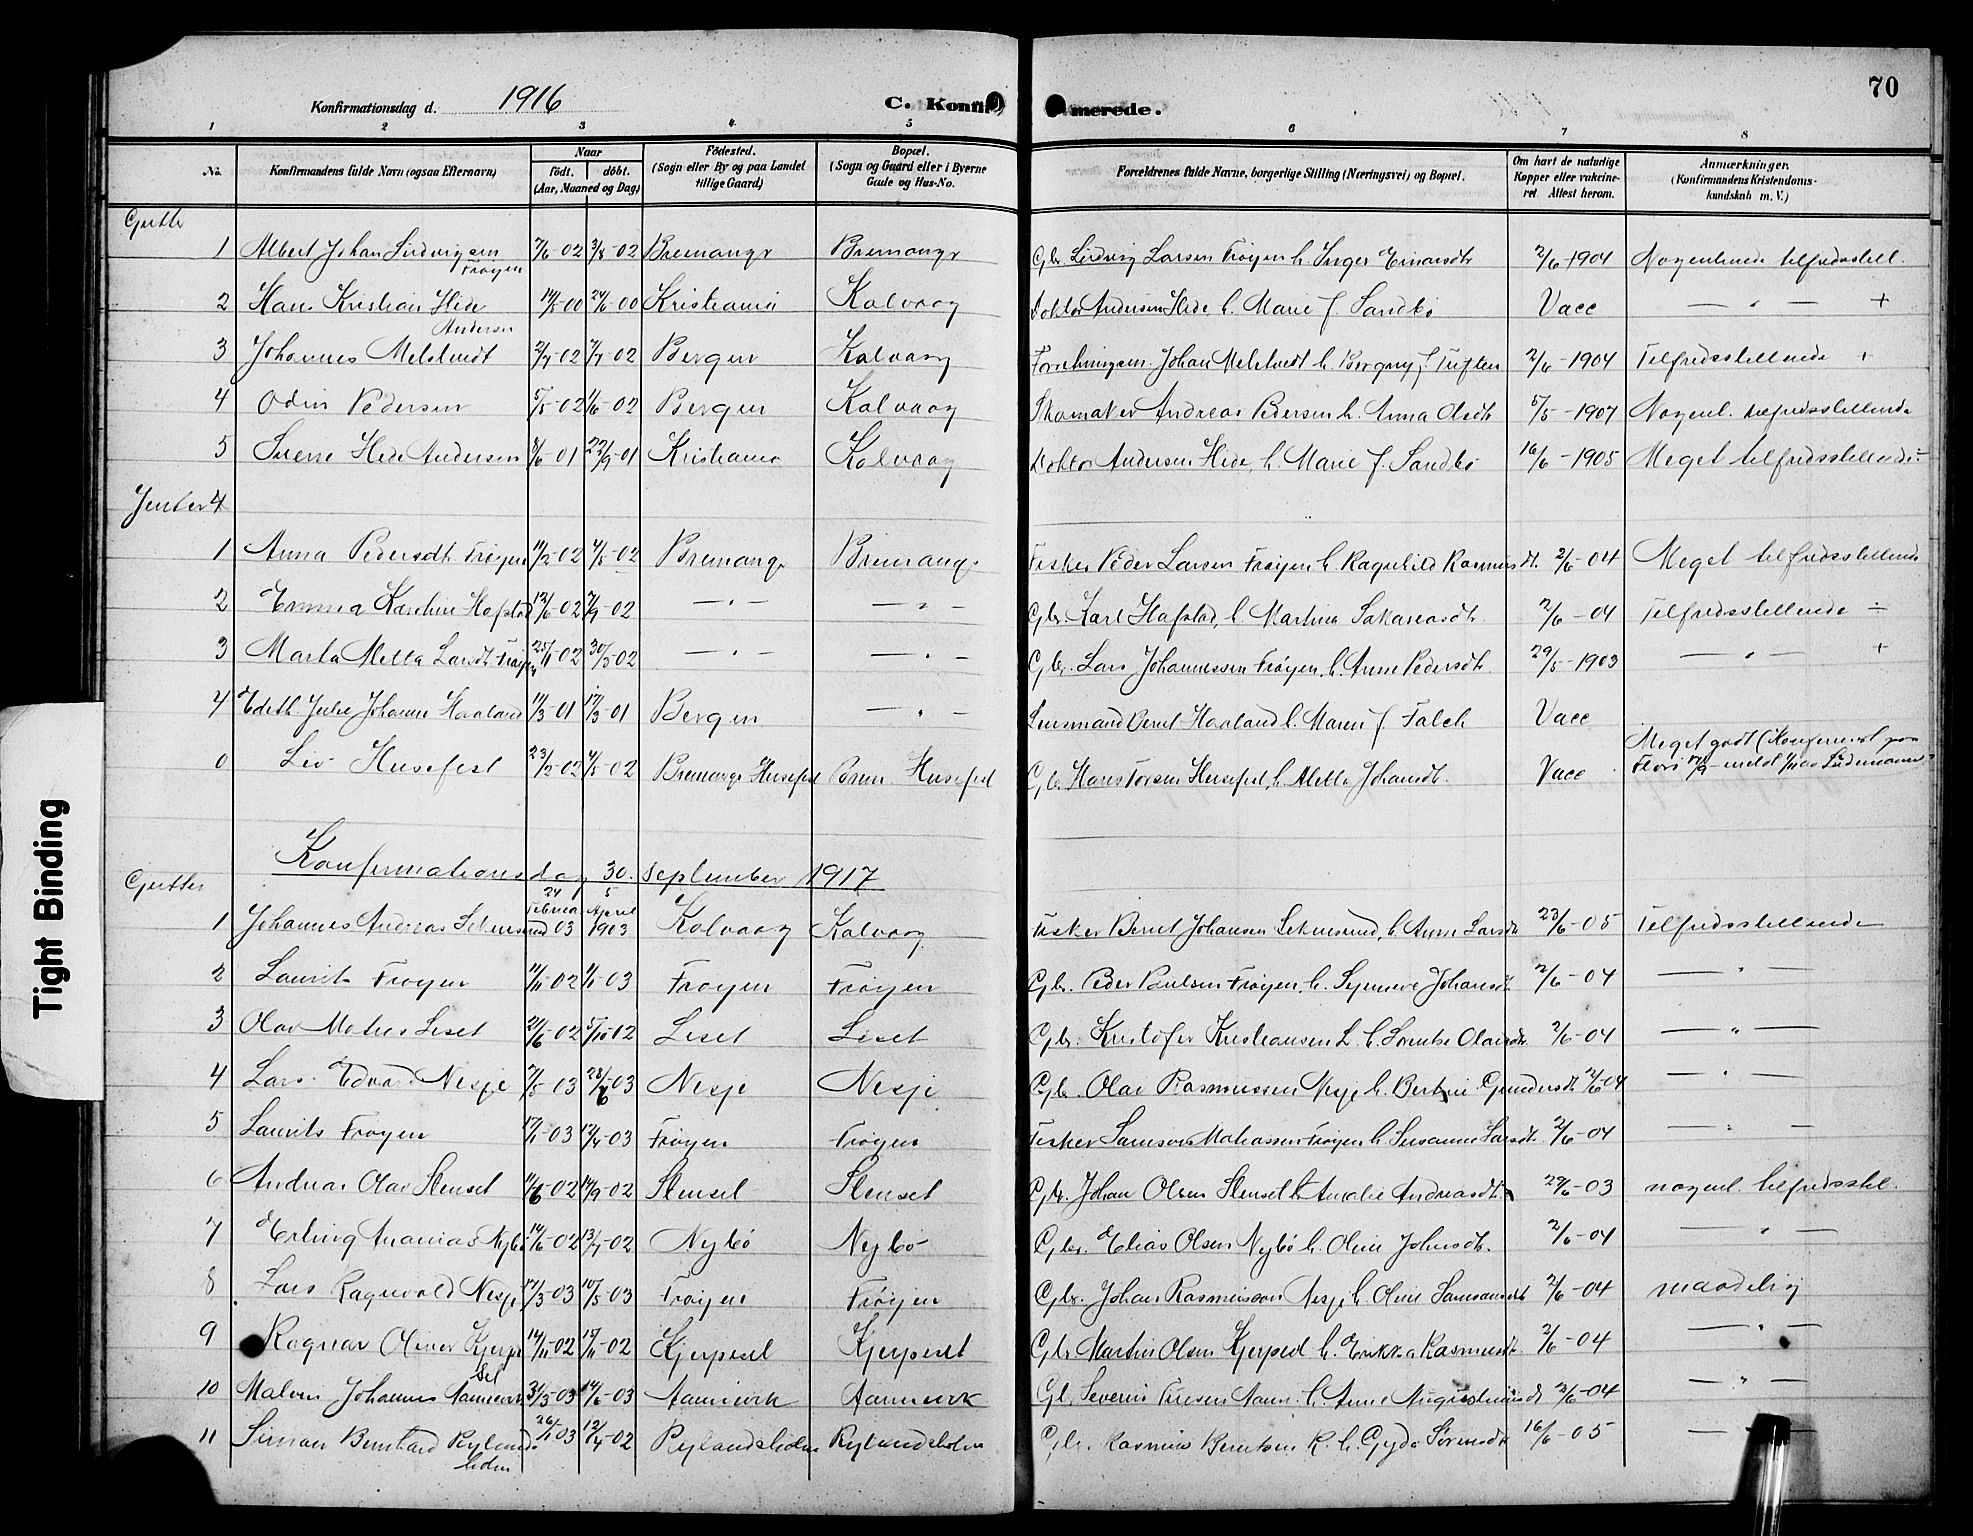 70
Konfirmationsdag d. 1916 C. Konfir merede.
1 2 3 4 5 6 7 8
No. Konfirmandens fulde Navn (ogsaa Efternavn) Naar født. døbt. (Aar, Maaned og Dag) Fødested. (Sogn eller By og paa Landet tillige Gaard) Bopæl. (Sogn og Gaard eller i Byerne Gade og Hus-No. Forældrenes fulde Navne, borgerlige Stilling (Næringsvei) og Bopæl. Om havt de naturlige Kopper eller vakcineret. Attest herom. Anmærkninger. (Konfirmandens Kristendomskundskab m. V.)
Gutter
1 Albert Johan Ludvigsen Frøyen 7/6-02 3/8-02 Bremanger Bremanger Gbr. Ludvig Larsen Frøyen h. Inger Einarsdtr 2/6-1904 Nogenlunde tilfredsstill.
2 Hans Kristian Hide Andersen 14/5-00 24/6-00 Kristiania Kalvaag Doktor Andersen Hide h. Marie f. Sandbø Vacc — " — +
3 Johannes Melstvedt 2/7-02 7/7-02 Bergen Kalvaag Johan Melstvedt h. Borgny f. Tuften 2/6-1904 Tilfredsstillende +
4 Odin Pedersen 5/5-02 1/6-02 Bergen Kalvaag Skomaker Andreas Pedersen h. Anna Olsdtr 5/5-1907 Nogenl. tilfredsstillende
5 Sverre Hide Andersen 8/6-01 22/9-01 Kristiania Kalvaag Doktor Andersen Hide, h. Marie f. Sandbø 16/6-1905 Meget tilfredsstillende ÷
Jenter 4
1 Anna Pedersdtr Frøyen 11/2-02 4/5-02 Bremanger Bremanger Fisker Peder Larsen Frøyen h. Ragnhild Rasmusdt. 2/6-04 Meget tilfredsstillende
2 Emma Karoline Hafstad 12/6-02 7/9-02 — " — — " — Gbr. Karl Hafstad, h. Martina Sakariasdtr. 2/6-04 Tilfredsstillende ÷
3 Marta Metta Larsdtr Frøyen 25/1-02 30/3-02 — " — — " — Gbr. Lars Johannessen Frøyen, h. Anne Pedersdtr. 29/5-1903 — " — +
4 Edith Julie Johanne Haaland 11/3-01 17/3-01 Bergen — " — Lensmand Bernt Haaland h. Maren f. Falch Vacc
0 Liv Husefest 23/2-02 4/5-02 Bremanger Husefest Brem. Husefest Gbr. Hans Torsen Husefest, h. Metta Johansdt. Vacc Meget godt (Konfirmert paa Florø 17/9-
Konfirmationsdag 30. september 1917
Gutter
1 Johannes Andreas 24 Februar 03 5 April 1903 Kalvaag Kalvaag Fisker Bernt Johansen h. Anne Larsdtr 23/6-05 Tilfredsstillende
2 Laurits Frøyen 11/11-02 1/1-03 Frøyen Frøyen Gbr. Peder Paulsen Frøyen, h. Synneve Johansdt 2/6-04 — " —
3 Olav Mateus Liset 21/6-02 5/10-02 Liset Liset Gbr. Kristofer Kristiansen L. h. Lorentse Olaisdtr. 2/6-04 — " —
4 Lars Edvard Nesje 7/5-03 28/6-03 Nesje Nesje Gbr. Olav Rasmussen Nesje h. Bertine Gundersdt. 2/6-04 — " —
5 Laurits Frøyen 17/1-03 12/4-03 Frøyen Frøyen Fisker Samson Matiassen Frøyen h. Susanne Larsdt. 2/6-04 — " —
6 Andreas Olav Stenset 11/6-02 14/9-02 Stenset Stenset Gbr. Johan Olsen Stenset h. Amalie Andreasdtr. 27/6-03 nogenl. tilfredsstil.
7 Erling Ananias Nybø 14/6-02 13/7-02 Nybø Nybø Gbr. Elias Olsen Nybø h. Oline Johnsdtr. 2/6-04 — " —
8 Lars Ragnvald Nesje 17/3-03 10/5-03 Frøyen Frøyen Gbr. Johan Rasmussen Nesje h. Oline Samsonsdt 2/6-04 maadelig
9 Ragnar Oliver Kjerpeset 14/11-02 17/11-02 Kjerpeset Kjerpeset Gbr. Martin Olsen Kjerpeset h. Erikka Rasmusdt. 2/6-04 — " —
10 Malvin Johannes 31/3-03 14/6-03 Gbr. Severin h. Anne Augustinusdt 2/6-04 — " —
11 Simon Bernhard Rylandsholm 26/1-03 12/4-02 Rylandsholm Rylandsholm Gbr. Rasmus Berntsen R. h. Gyda Sørensdtr 16/6-05
Tight Binding